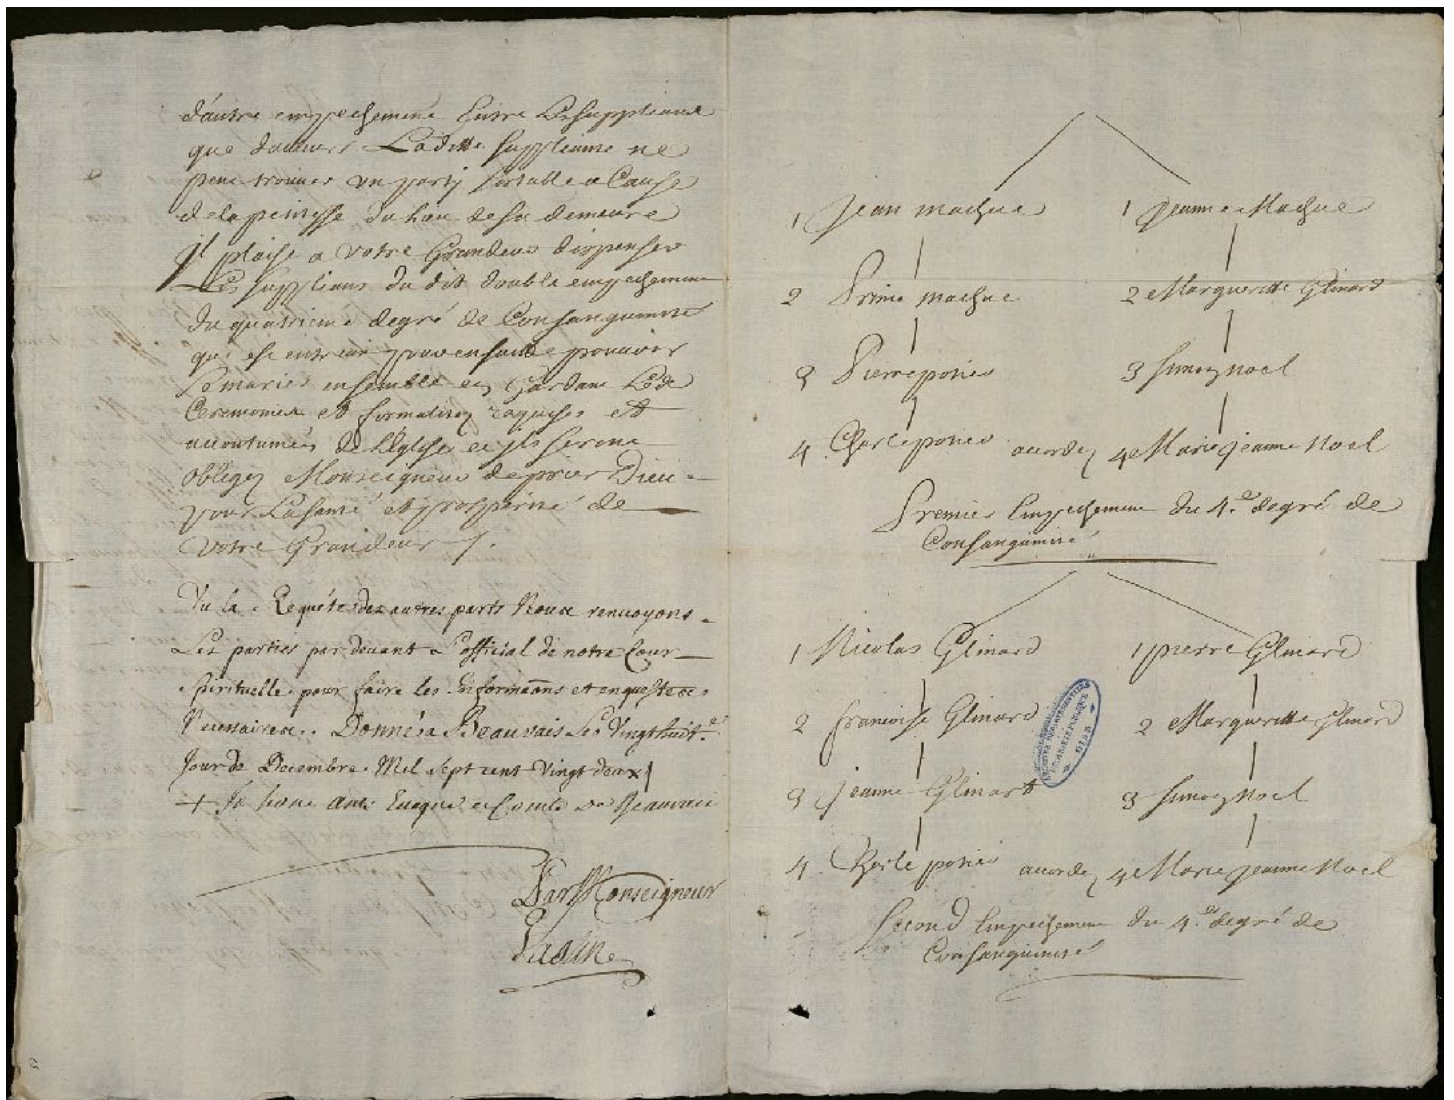 d'autre empechement Entre Les suppliant
que dailleurs Laditte suppliante ne
peut trouver un party sortable a Cause
de la petitesse du lieu de sa demeure
il plaise a votre Grandeur dispenser
Les suppliant du dit double empechement
du quatrieme degré de Consanguinité
qui est entr'eux pour ensuitte pouvoir
se marier ensemble en Gardant Les
Ceremonies et formalitez requises et
accoutumées de l'Eglise et ils seront
obligez Monseigneur de prier Dieu
pour La santé et prosperité de
votre Grandeur
Vu la Requéte des autres parts Nous renvoyons
Les parties par devant L'official de notre Cour
spirituelle pour faire les Informaons et enquestes
Necessaires. Donné a Beauvais Le Vingthuit.e
Jour de Decembre Mil Sept cent Vingt deux
+ Eveque et Comte de Beauvais
Par Monseigneur
1 Jean machue 1 Jeanne Machue
2 Prime machue 2 Margueritte Glinard
3 Pierre potier 3 Simon noel
4 Charle potier accordez 4 Marie jeanne Noel
Premier Empechement du 4.e degré de
Consanguinité
1 Nicolas Glinard 1 pierre Glinard
2 francoise Glinard 2 Margueritte Glinard
3 jeanne Glinart 3 Simon Noel
4 Charle potier accordez 4 Marie jeanne Noel
Second Empechement du 4.e degré de
Consanguinité